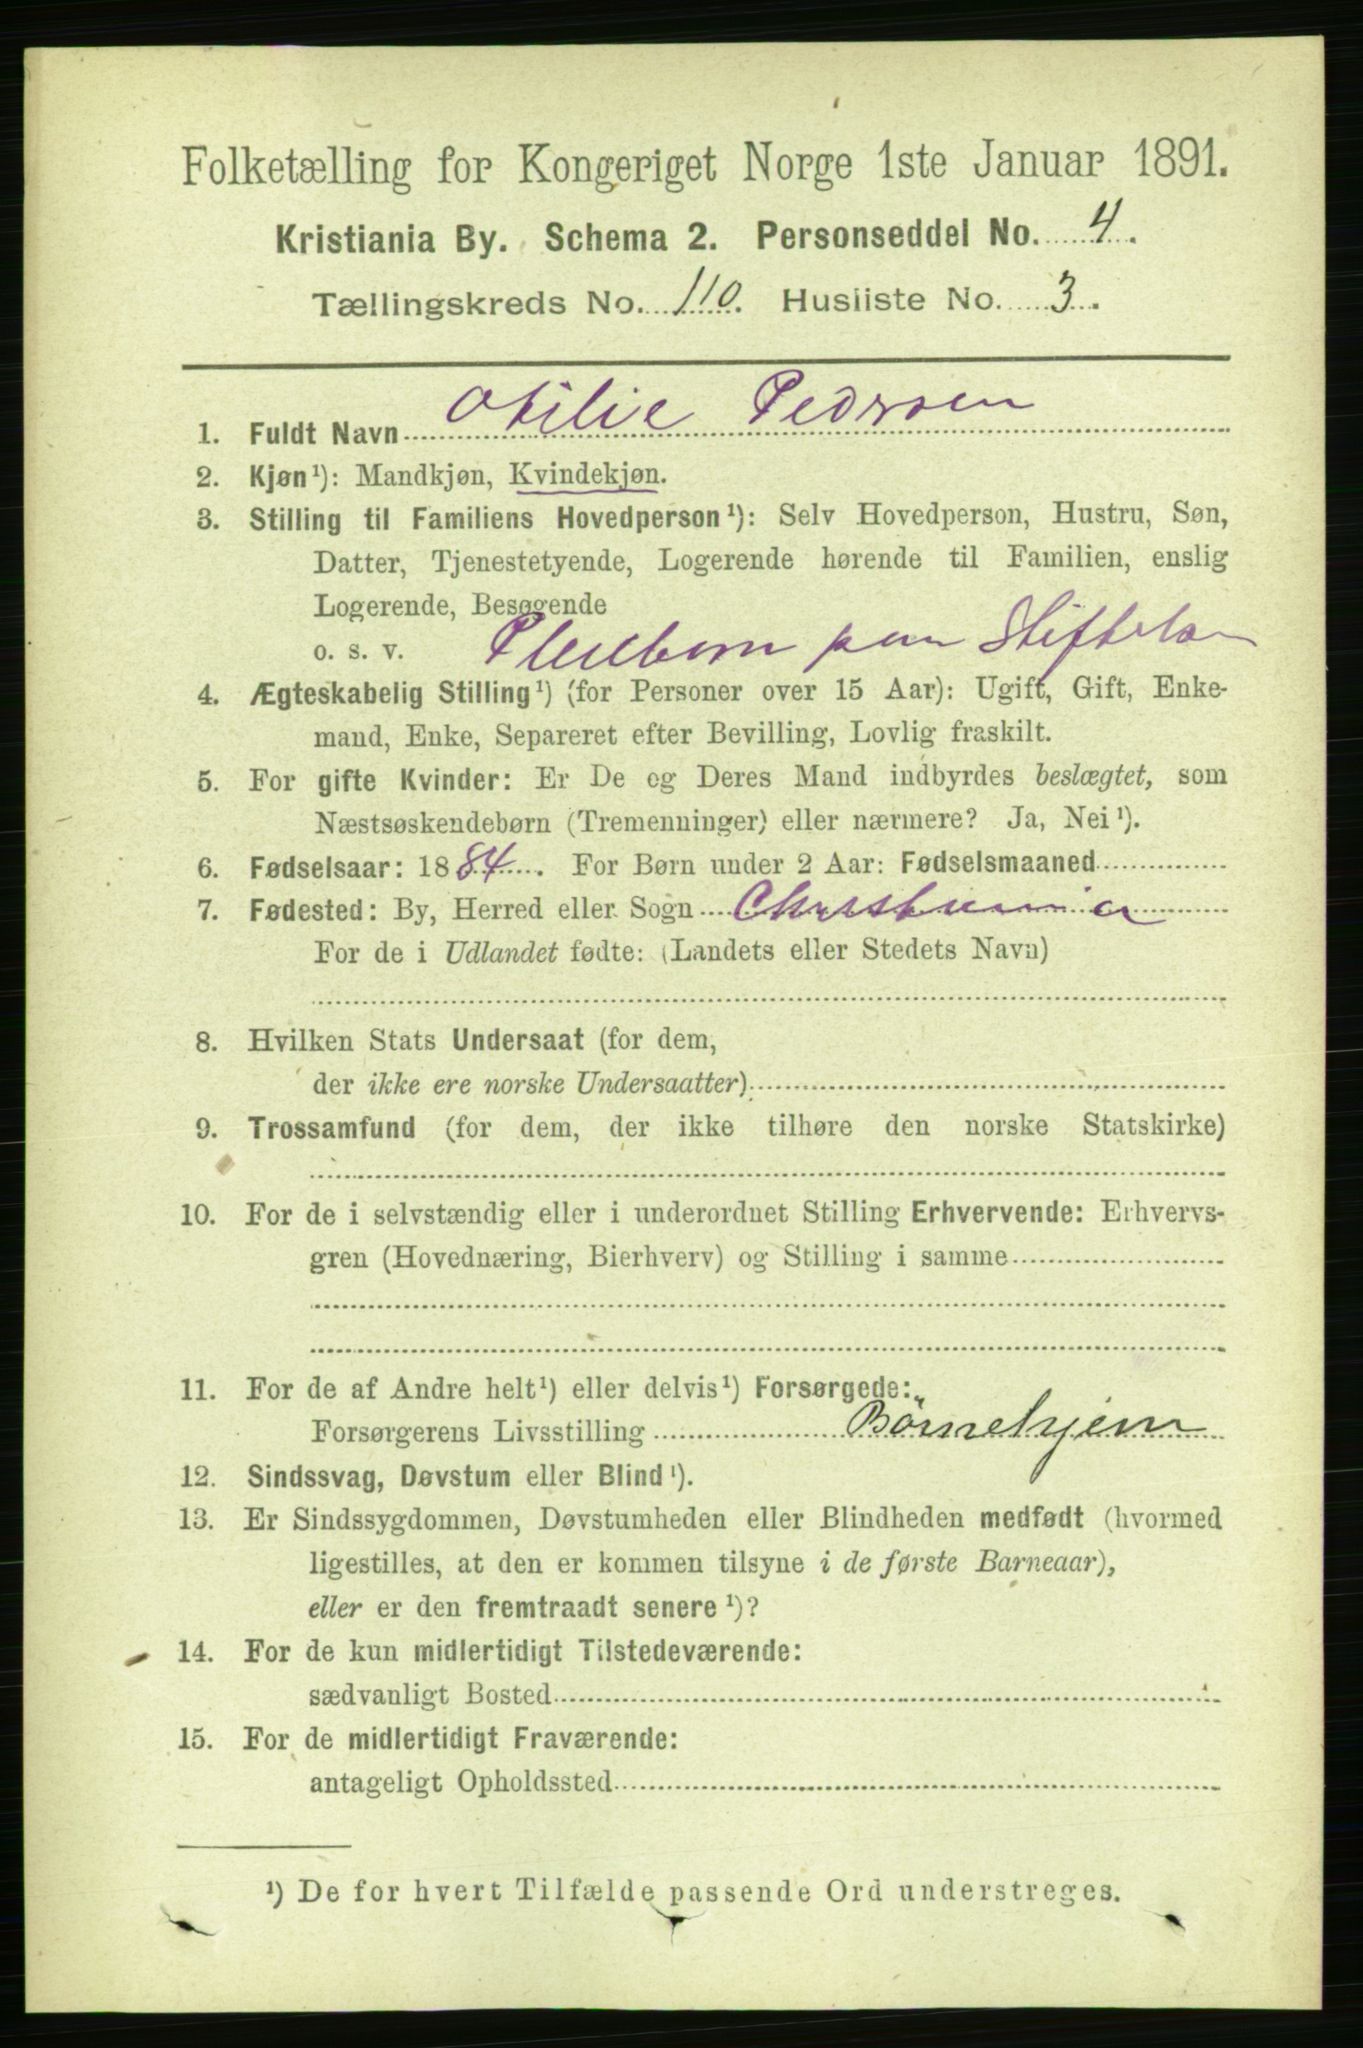 Folketælling for Kongeriget Norge 1ste Januar 1891.
Kristiania By. Schema 2. Personseddel No. 4.
Tællingskreds No. 110. Husliste No. 3.
1. Fuldt Navn Otilie Pedrsen
2. Kjøn¹): Mandkjøn, Kvindekjøn.
3. Stilling til Familiens Hovedperson¹): Selv Hovedperson, Hustru, Søn,
Datter, Tjenestetyende, Logerende hørende til Familien, enslig
Logerende, Besøgende
o. s. v. paa
4. Ægteskabelig Stilling¹) (for Personer over 15 Aar): Ugift, Gift, Enke-
mand, Enke, Separeret efter Bevilling, Lovlig fraskilt.
5. For gifte Kvinder: Er De og Deres Mand indbyrdes beslægtet, som
Næstsøskendebørn (Tremenninger) eller nærmere? Ja, Nei¹).
6. Fødselsaar: 1884. For Børn under 2 Aar: Fødselsmaaned
7. Fødested: By, Herred eller Sogn Christiania
For de i Udlandet fødte: (Landets eller Stedets Navn)
8. Hvilken Stats Undersaat (for dem,
der ikke ere norske Undersaatter)
9. Trossamfund (for dem, der ikke tilhøre den norske Statskirke)
10. For de i selvstændig eller i underordnet Stilling Erhvervende: Erhvervs-
gren (Hovednæring, Bierhverv) og Stilling i samme
11. For de af Andre helt¹) eller delvis¹) Forsørgede:
Forsørgerens Livsstilling Börnehjem
12. Sindssvag, Døvstum eller Blind¹).
13. Er Sindssygdommen, Døvstumheden eller Blindheden medfødt (hvormed
ligestilles, at den er kommen tilsyne i de første Barneaar),
eller er den fremtraadt senere¹)?
14. For de kun midlertidigt Tilstedeværende:
sædvanligt Bosted
15. For de midlertidigt Fraværende:
antageligt Opholdssted
¹) De for hvert Tilfælde passende Ord understreges.